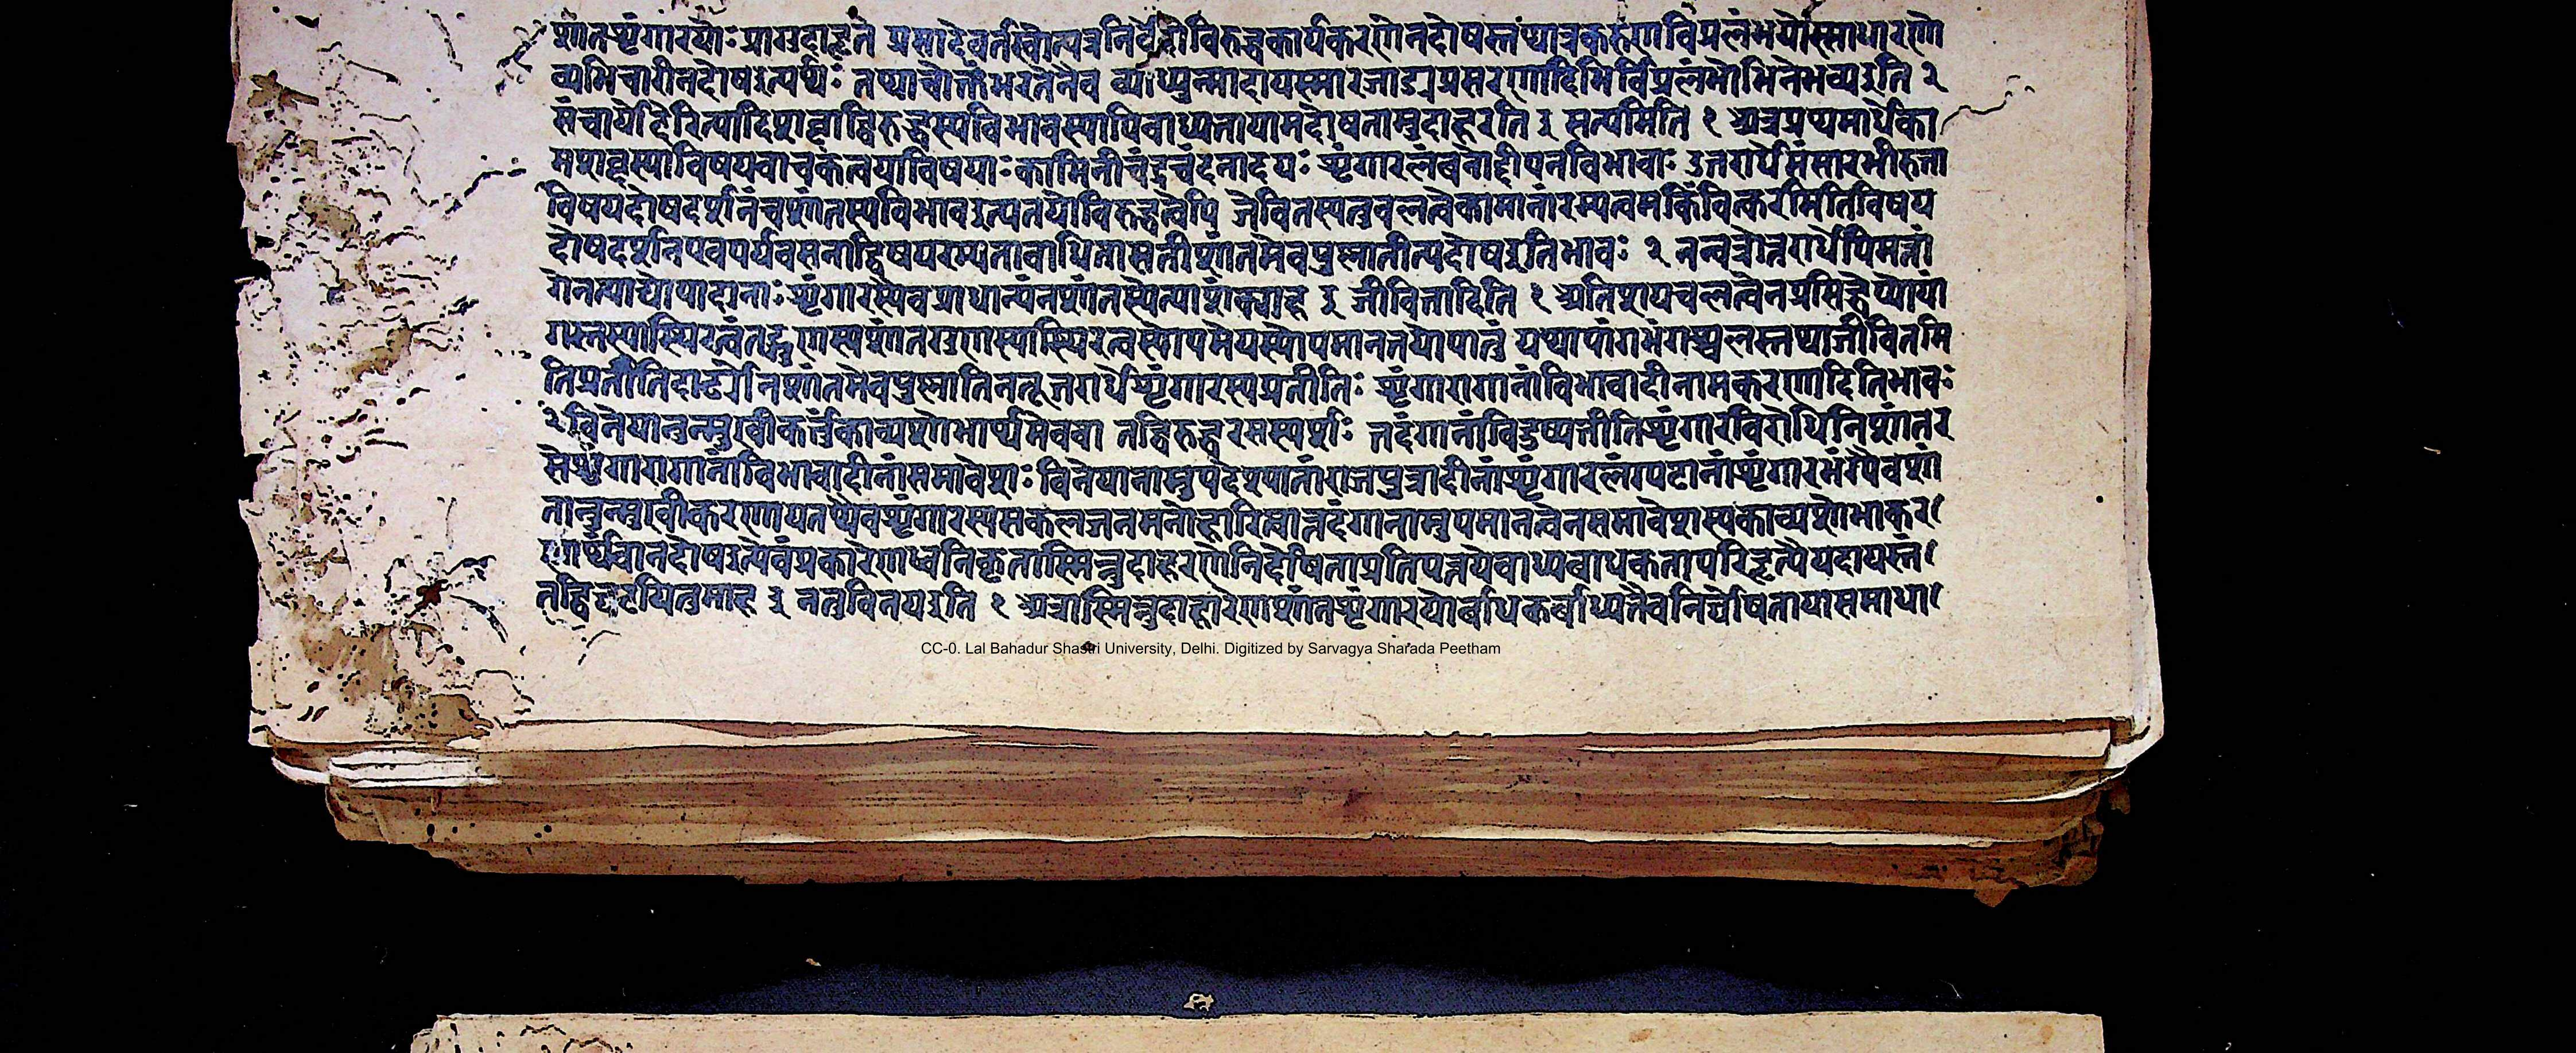 शांतशृंगारयोः प्रागुदाहृते प्रसादेवर्तस्वेत्यत्रनिर्वेदोविरुद्धकार्यकरणेनदोषस्तथात्रकरुणविप्रलंभयोस्साधारणो
व्यभिचारीनदोषइत्यर्थः तथाचोक्तंभरतेनैव व्याध्युन्मादापस्मारजाड्यप्रसरणादिभिर्विप्रलंभोभिनेतव्यइति २
संचार्यादेरित्यादिशब्दाद्विरुद्धस्यविभावस्यापिबाध्यतायामदोषतामुदाहरति ३ सत्यमिति १ अत्रप्रथमार्धेका
मशब्दस्यविषयवाचकतयाविषयाः कामिनीचंद्रचंदनादयः शृंगारलंबनोद्दीपनविभावाः उत्तरार्धेसंसारभीरुता
विषयदोषदर्शनंचशांतस्यविभावइत्यनयोर्विरुद्धत्वेपि जीवितस्यतुचलत्वेकामानांरम्यत्वमकिंचित्करमितिविषय
दोषदर्शनएवपर्यवसनाद्विषयरम्यताबाधितासतीशांतमेवपुस्नातीत्यदोषइतिभावः २ नन्वत्रोत्तरार्धेपिमत्तां
गनेत्याद्योपादानाः शृंगारस्यैवप्राधान्यंनशांतस्येत्याशंक्याह ३ जीवितादिति १ अतिशयचलत्वेनप्रसिद्धे
तिप्रतीतिदार्ढ्येनशांतमेवपुस्नातिनतूत्तरार्धेशृंगारस्यप्रतीतिः शृंगारागानांविभावादीनामकरणादितिभावः
२ विनेयानुन्मुखीकर्तुंकाव्यशोभार्थमेववा तद्विरुद्धरसस्पर्शः तदंगानांविदुष्यतीतिशृंगारविरोधिनिशांतर
सेशृंगारागानांविभावादीनांसमावेशः विनेयानामुपदेश्यानांराजपुत्रादीनांशृंगारलंपटानांशृंगारभंग्यैवशां
तानुन्मुखीकरणायतथैवशृंगारस्यसकलजनमनोहारित्वात्तदंगानामुपमानत्वेनसमावेशस्यकाव्यशोभाकर
णार्थत्वानदोषइत्येवंप्रकारेणध्वनिकृतास्मिन्नुदाहरणेनिर्दोषिताप्रतिपत्तयेबाध्यबाधकतापरिहृत्येयदायस्तं
तद्विघटयितुमाह ३ नतुविनयइति १ अत्रास्मिन्नुदाहारेणशांतशृंगारयोर्बाधकबाध्यतैवनिर्दोषितायासमाधा
CC-0. Lal Bahadur Shastri University, Delhi. Digitized by Sarvagya Sharada Peetham